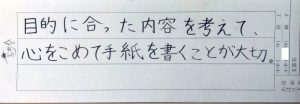 目的に合った内容を考えて、
心をこめて手紙を書くことが大切。